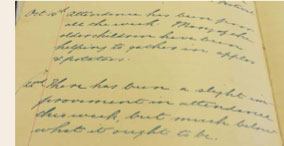 Oct 15th Attendance has been poor
all the week. Many of the
older children have been
helping to gather in apples
& potatoes.
22nd There has been a slight im
provement in attendance
this week, but much below
what it ought to be.